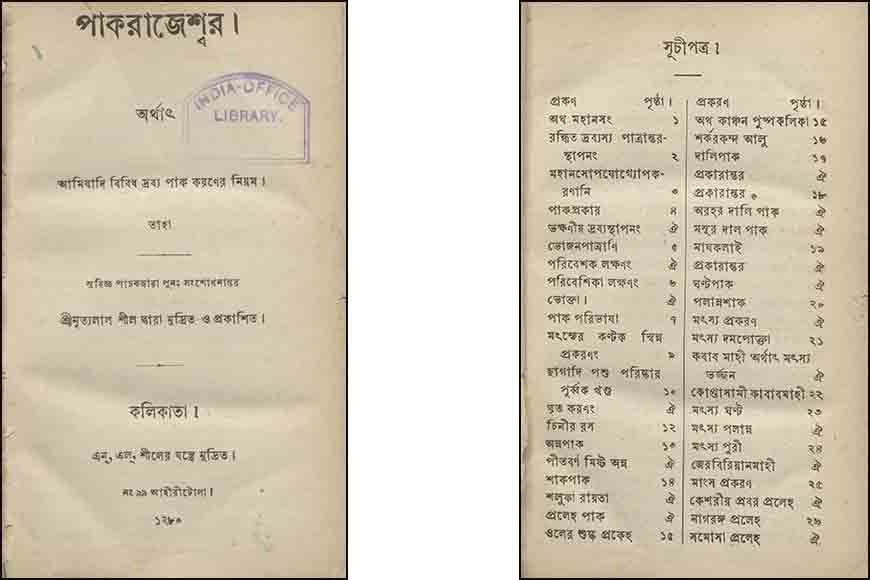 পাকরাজেশ্বর।
INDIA-OFFICE
LIBRARY.
অর্থাৎ
আমিষাদি বিবিধ দ্রব্য পাক করণের নিয়ম।
তাহা
সুবিজ্ঞ পাচকদ্বারা পুনঃ সংশোধনান্তর
শ্রীনৃত্যলাল শীল দ্বারা মুদ্রিত ও প্রকাশিত।
কলিকাতা।
এন্, এল্, শীলের যন্ত্রে মুদ্রিত।
নং ৯৯ আহীরীটোলা।
১২৮০
সূচীপত্র।
প্রকণ পৃষ্ঠা।
অথ মহানসং ১
রন্ধিত দ্রব্যস্য পাত্রান্তর-
স্থাপনং ২
মহানসোপযোগ্যোপক-
রণানি ৩
পাকপ্রকার ৪
ভক্ষণীয় দ্রব্যস্থাপনং ঐ
ভোজনপাত্রাণি ৫
পরিবেশক লক্ষণং ঐ
পরিবেশিকা লক্ষণং ৬
ভোক্তা। ঐ
পাক পরিভাষা ৭
মৎস্যের কণ্টক স্বিন্ন
প্রকরণং ৯
ছাগাদি পশু পরিষ্কার
পূর্ব্বক খণ্ড ১০
ঘৃত করণং ঐ
চিনীর রস ১২
অন্নপাক ১৩
পীতবর্ণ মিষ্ট অন্ন ঐ
শাকপাক ১৪
শলুকা রায়তা ঐ
প্রলেহ পাক ঐ
ওলের শুষ্ক প্রলেহ ১৫
প্রকরণ পৃষ্ঠা।
অথ কাঞ্চন পুষ্পকলিকা ১৫
শর্করকন্দ আলু ১৬
দালিপাক ১৭
প্রকারান্তর ঐ
প্রকারান্তর ১৮
অরহর দালি পাক ঐ
মসূর দাল পাক ঐ
মাষকলাই ১৯
প্রকারান্তর ঐ
ঘণ্টপাক ঐ
পলান্নশাক ২০
মৎস্য প্রকরণ ঐ
মৎস্য দমপোক্তা ২১
কবাব মাহী অর্থাৎ মৎস্য
ভর্জ্জন ঐ
কোপ্তাসামী কাবাবমাহী ২২
মৎস্য ঘণ্ট ২৩
মৎস্য পলান্ন ঐ
মৎস্য পুরী ২৪
জেরবিরিয়ানমাহী ঐ
মাংস প্রকরণ ২৫
কেশরীয় প্রবর প্রলেহ ঐ
নাগরঙ্গ প্রলেহ ২৬
সমোসা প্রলেহ ঐ